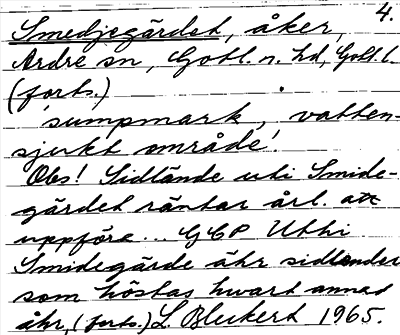 4.
Smedjegärdet, åker,
Ardre sn, Gotl. n. hd, Gotl. l.
(forts.)
'sumpmark, vatten-
sjukt område'.
Obs! Sidlände uti Smide-
gärdet räntar årl. att
uppföre... GGP Uthi
Smidegärde ähr sidlender
som höstas hwart annat
åhr, (forts.) L. Bleckert 1965.